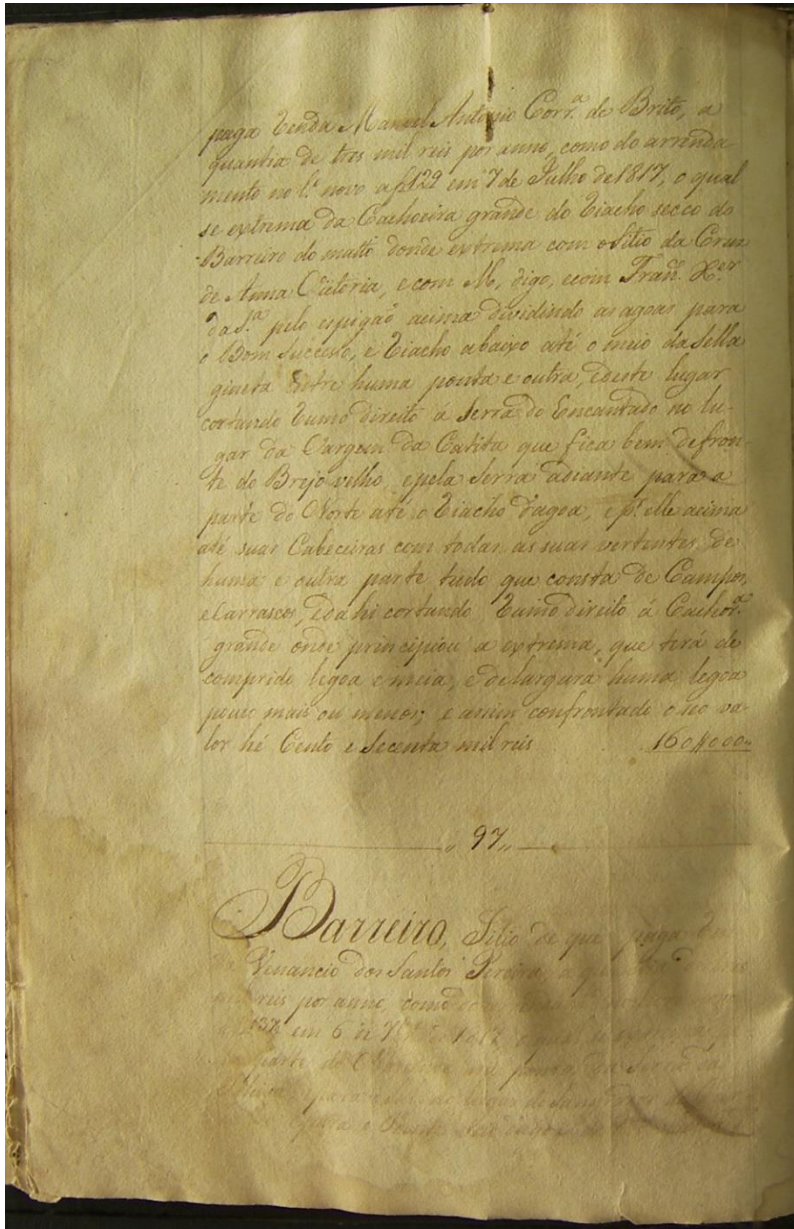 paga Renda Manoel Antonio Corr.ª de Brito, a
quantia de tres mil reis por anno, como do arrenda
mento no l.º novo a f 129 em 7 de Julho de 1817, o qual
se extrema da Cachoeira grande do Riacho secco do
Barreiro do matto donde extrema com o Sitio da Cruz
de Anna Victoria, e com M, digo, e com Fran.co X.er
da S.ª pelo espigaõ acima dividindo as agoas para
o Bom Successo, e Riacho abaixo até o meio da Sella
gineta entre huma ponta e outra, e deste lugar
cortando Rumo direito a Serra do Encantado no lu-
gar da Vargem da Catita que fica bem defron-
te do Brejo velho, e pela Serra adiante para a
parte do Norte até o Riacho d'agoa, e p.r elle acima
até suas Cabeceiras com todas as suas vertentes de
huma e outra parte tudo que consta de Campos,
e Carrascos, e dahi cortando Rumo direito á Cachor.ª
grande onde principiou a extrema, que terá de
comprido legoa e meia, e de largura huma legoa
pouco mais ou menos; e assim confrontado o seo va-
lor hé Cento e Secenta mil reis 160$000
97
Barreiro, Sitio de que paga
Venancio dos Santos Pereira, a quantia
mil reis por anno, como
137 em 6 de
parte do
para
para o